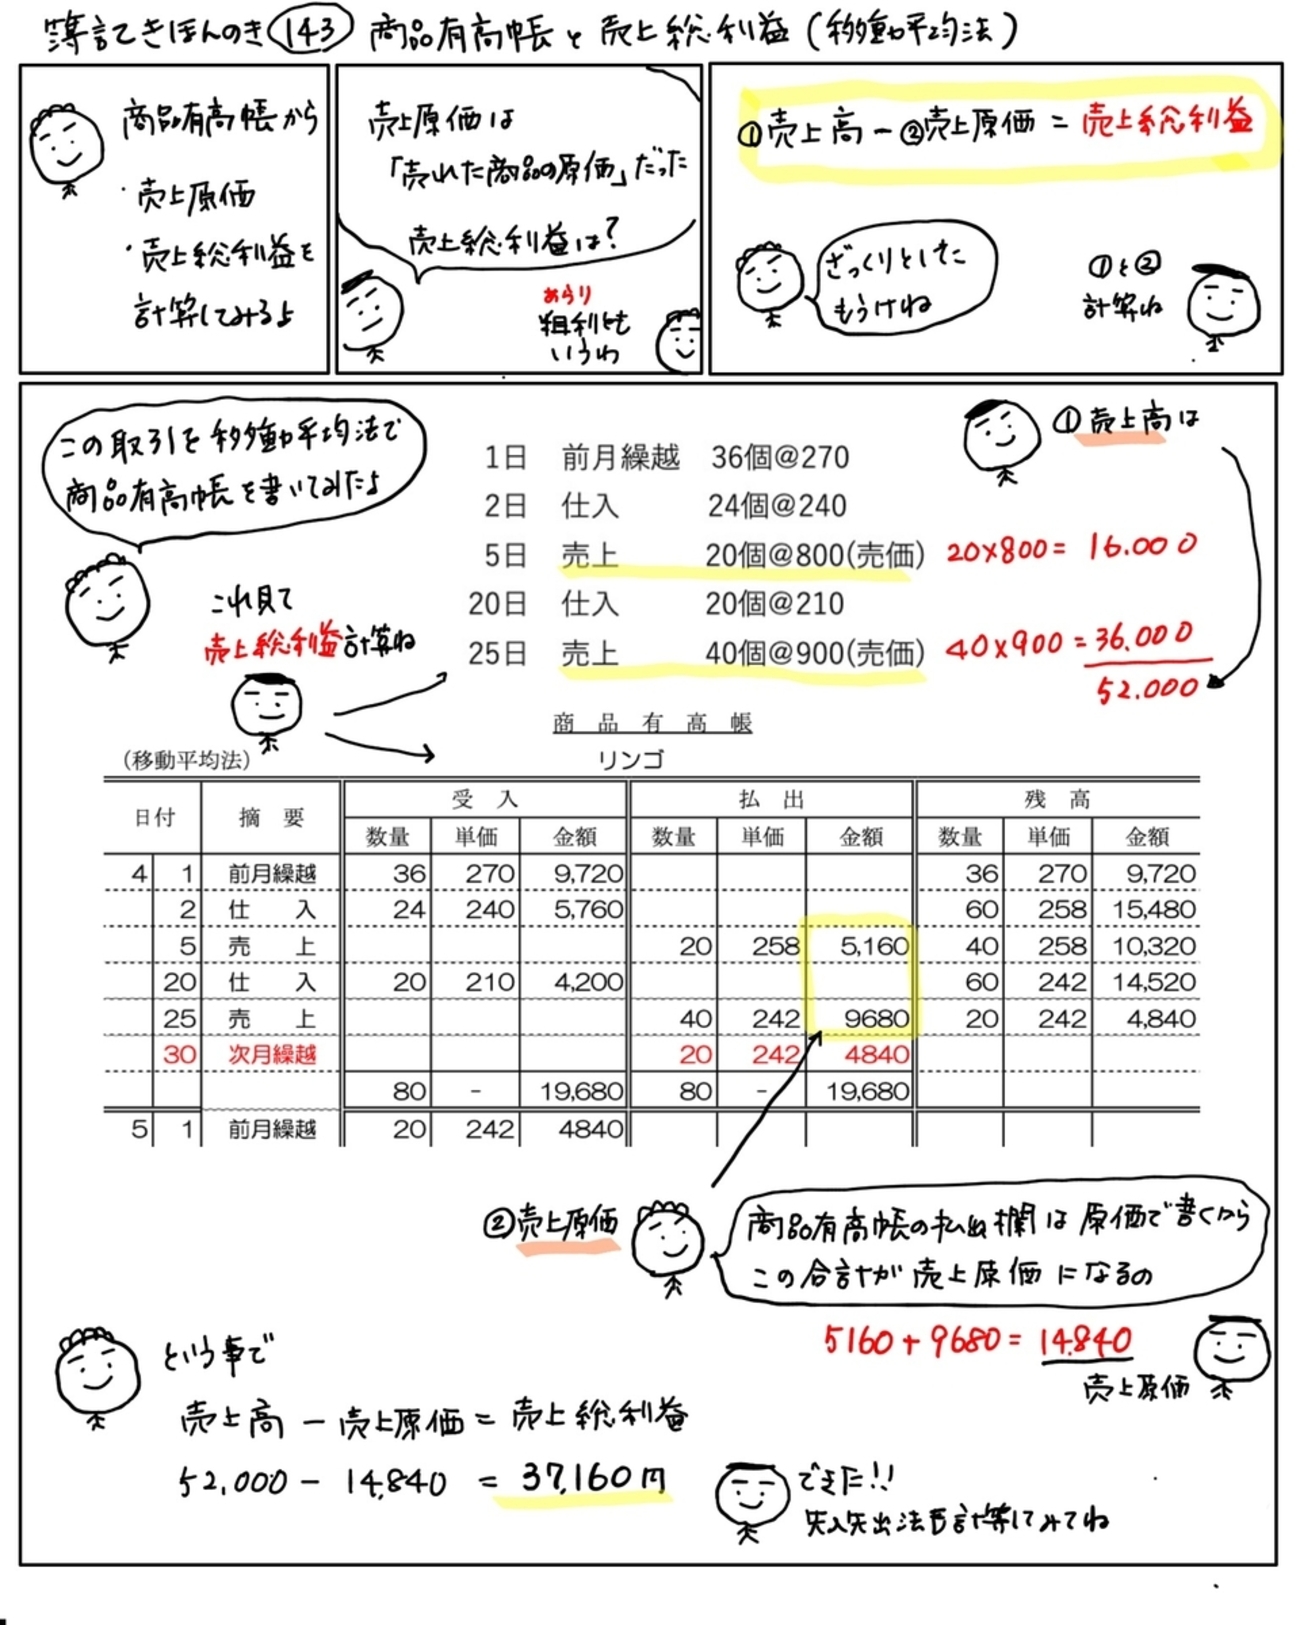 簿記きほんのき 143 商品有高帳と売上総利益(移動平均法)
商品有高帳から
・売上原価
・売上総利益を
計算してみるよ
売上原価は
「売れた商品の原価」だった
売上総利益は?
あらり
粗利とも
いうわ
①売上高－②売上原価＝売上総利益
ざっくりとした
もうけね
①と②
計算ね
この取引を移動平均法で
商品有高帳を書いてみたよ
これ見て
売上総利益計算ね
①売上高は
1日 前月繰越 36個@270
2日 仕入 24個@240
5日 売上 20個@800(売価) 20×800＝ 16.000
20日 仕入 20個@210
25日 売上 40個@900(売価) 40×900＝36.000
52.000
商品有高帳
(移動平均法) リンゴ
日付 摘要 受入 払出 残高
数量 単価 金額 数量 単価 金額 数量 単価 金額
4 1 前月繰越 36 270 9,720 36 270 9,720
2 仕入 24 240 5,760 60 258 15,480
5 売上 20 258 5,160 40 258 10,320
20 仕入 20 210 4,200 60 242 14,520
25 売上 40 242 9680 20 242 4,840
30 次月繰越 20 242 4840
80 - 19,680 80 - 19,680
5 1 前月繰越 20 242 4840
②売上原価
商品有高帳の払出欄は原価で書くから
この合計が売上原価になるの
5160＋9680＝14.840
売上原価
という事で
売上高－売上原価＝売上総利益
52.000－14.840＝37,160円
できた!!
先入先出法も計算してみてね